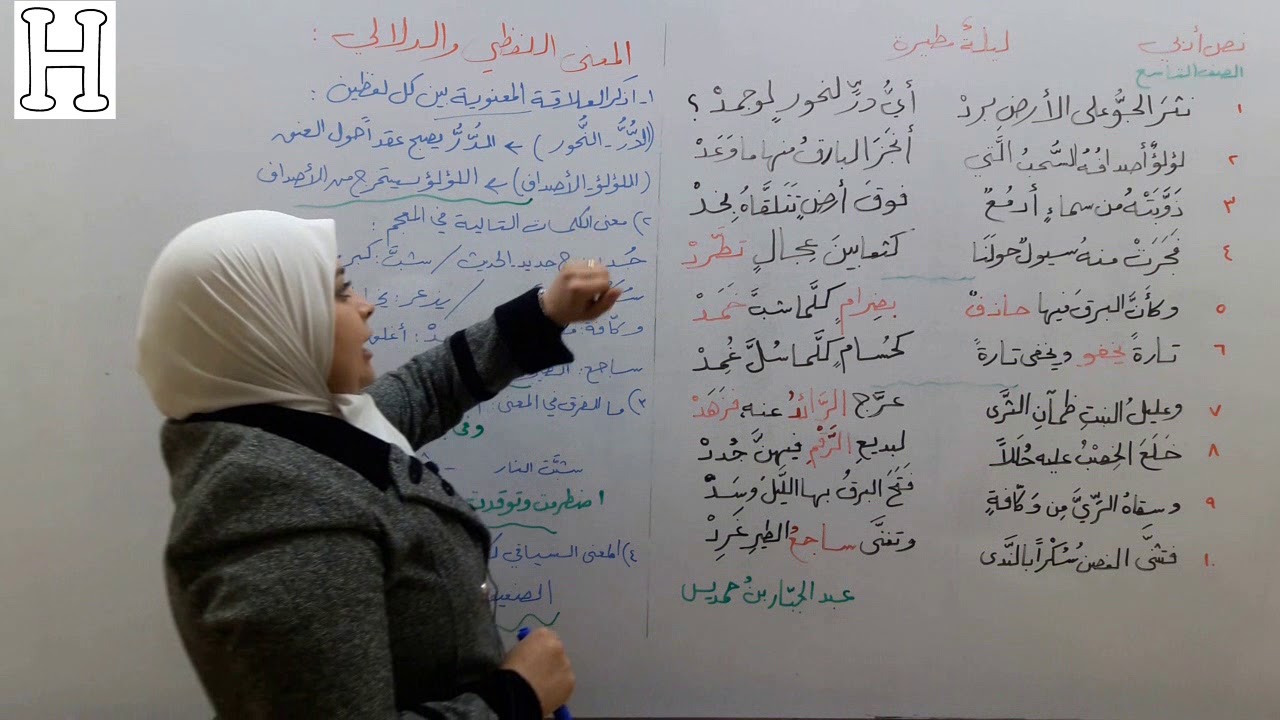 H
نص أدبي
ليلةٌ مطيرة
الصف التاسع
١ نثرَ الجوُّ على الأرضِ بردْ أيُّ درٍّ لنحورٍ لو جمدْ ؟
٢ لؤلؤٌ أصدافُهُ السُّحبُ الَّتي أنجزَ البارقُ منها ما وَعَدْ
٣ ذَوَّبَتْهُ من سماءٍ أدمُعٌ فوقَ أرضٍ تَتَلقَّاهُ بِخدْ
٤ فجَرَتْ منهُ سيولٌ حولَنَا كثعابينَ عجالٍ تَطَّرِدْ
٥ وكأنَّ البرقَ فيها حاذفٌ بضِرامٍ كلَّما شبَّ خَمَدْ
٦ تارةً يخفو ويخفى تارةً كحُسامٍ كلَّما سُلَّ غُمِدْ
٧ وعليلُ النبتِ ظمآنِ الثَّرى عرَّج الرَّائدُ عنه فزَهَدْ
٨ خَلَعَ الخِصْبُ عليه حُلَلاً لبديعِ الرَّقْمِ فيهنَّ جُددْ
٩ وسقاهُ الرِّيَّ مِن وَكَّافةٍ فَتَحَ البرقُ بها اللَّيلَ وسَدّْ
١٠ فتثنَّى الغصنُ سُكْراً بالنَّدى وتغنَّى ساجعُ الطيرِ غَرِدْ
عبد الجبّار بنُ حمديس
المعنى اللفظي والدلالي :
١- اذكر العلاقة المعنوية بين كل لفظين :
(الدُّرُّ - النُّحور) ← الدُّرُّ يصبح عقداً حول العنق
(اللؤلؤ - الأصداف) ← اللؤلؤ يستخرج من الأصداف
٢) معنى الكلمات التالية في المعجم :
حديد الحدث / شبَّ : كبر
/ يذعر :
وكّافة : أغلق
ساجع :
٣) ما الفرق في المعنى :
شبَّت النار
اضطرمت وتوقدت
٤) المعنى السياقي